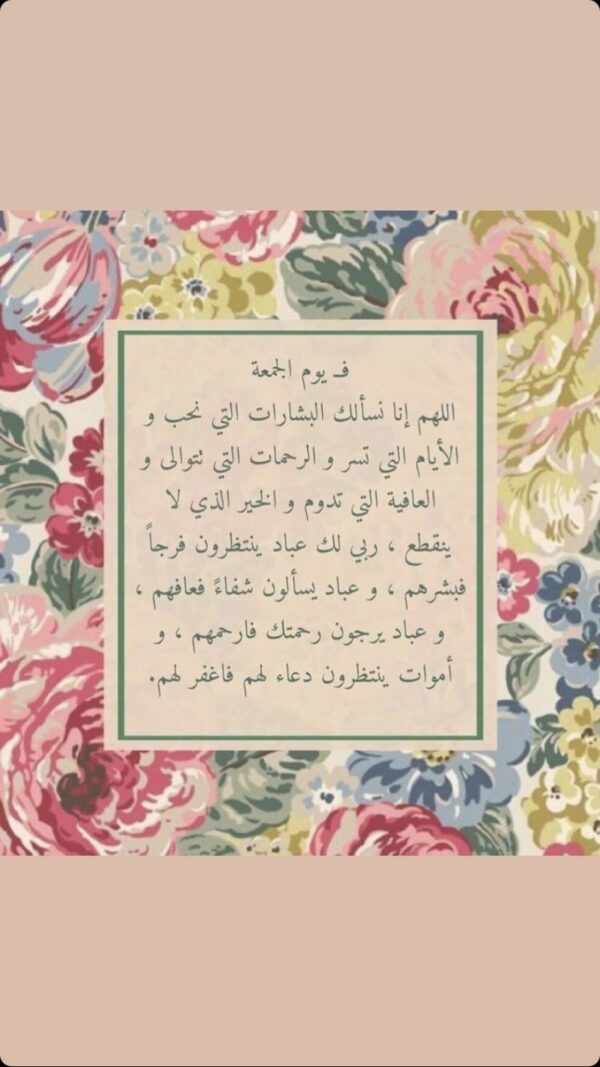 فـ يوم الجمعة
اللهم إنا نسألك البشارات التي نحب و
الأيام التي تسر و الرحمات التي تتوالى و
العافية التي تدوم و الخير الذي لا
ينقطع ، ربي لك عباد ينتظرون فرجاً
فبشرهم ، و عباد يسألون شفاءً فعافهم ،
و عباد يرجون رحمتك فارحمهم ، و
أموات ينتظرون دعاء لهم فاغفر لهم.